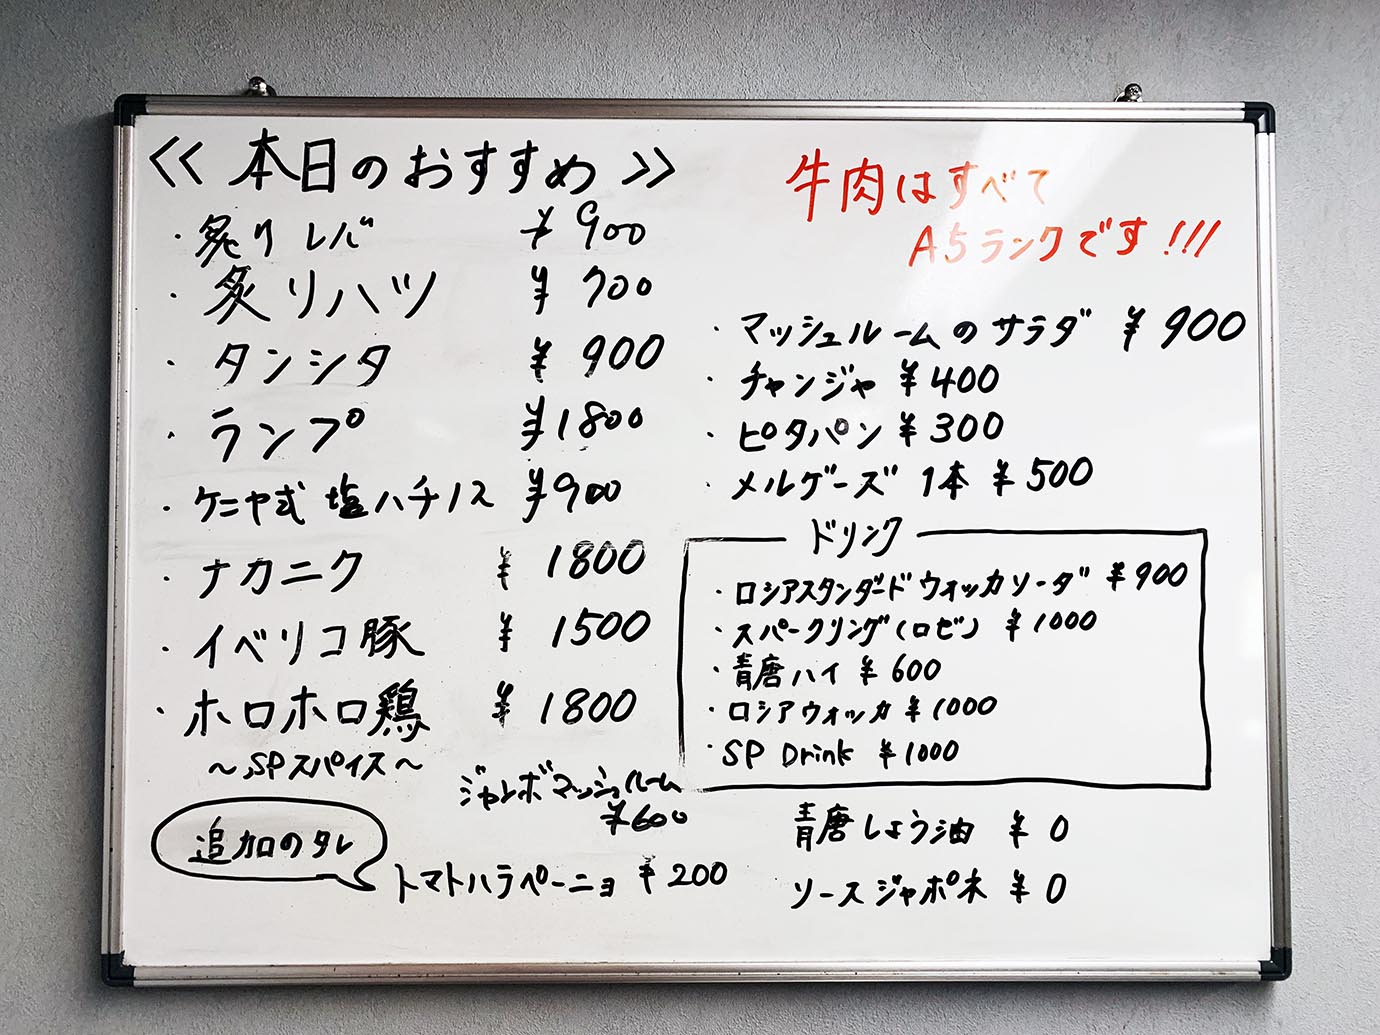 << 本日のおすすめ >>
・炙りレバ ¥900
・炙リハツ ¥700
・タンシタ ¥900
・ランプ ¥1800
・ケニヤ式 塩ハチノス ¥900
・ナカニク ¥1800
・イベリコ豚 ¥1500
・ホロホロ鶏 ¥1800
〜SPスパイス〜
ジャンボマッシュルーム
¥600
牛肉はすべて
A5ランクです!!!
・マッシュルームのサラダ ¥900
・チャンジャ ¥400
・ピタパン ¥300
・メルゲーズ 1本 ¥500
ドリンク
・ロシアスタンダードウォッカソーダ ¥900
・スパークリング(ロゼ) ¥1000
・青唐ハイ ¥600
・ロシアウォッカ ¥1000
・SP Drink ¥1000
追加のタレ
トマトハラペーニョ ¥200
青唐しょう油 ¥0
ソースジャポネ ¥0